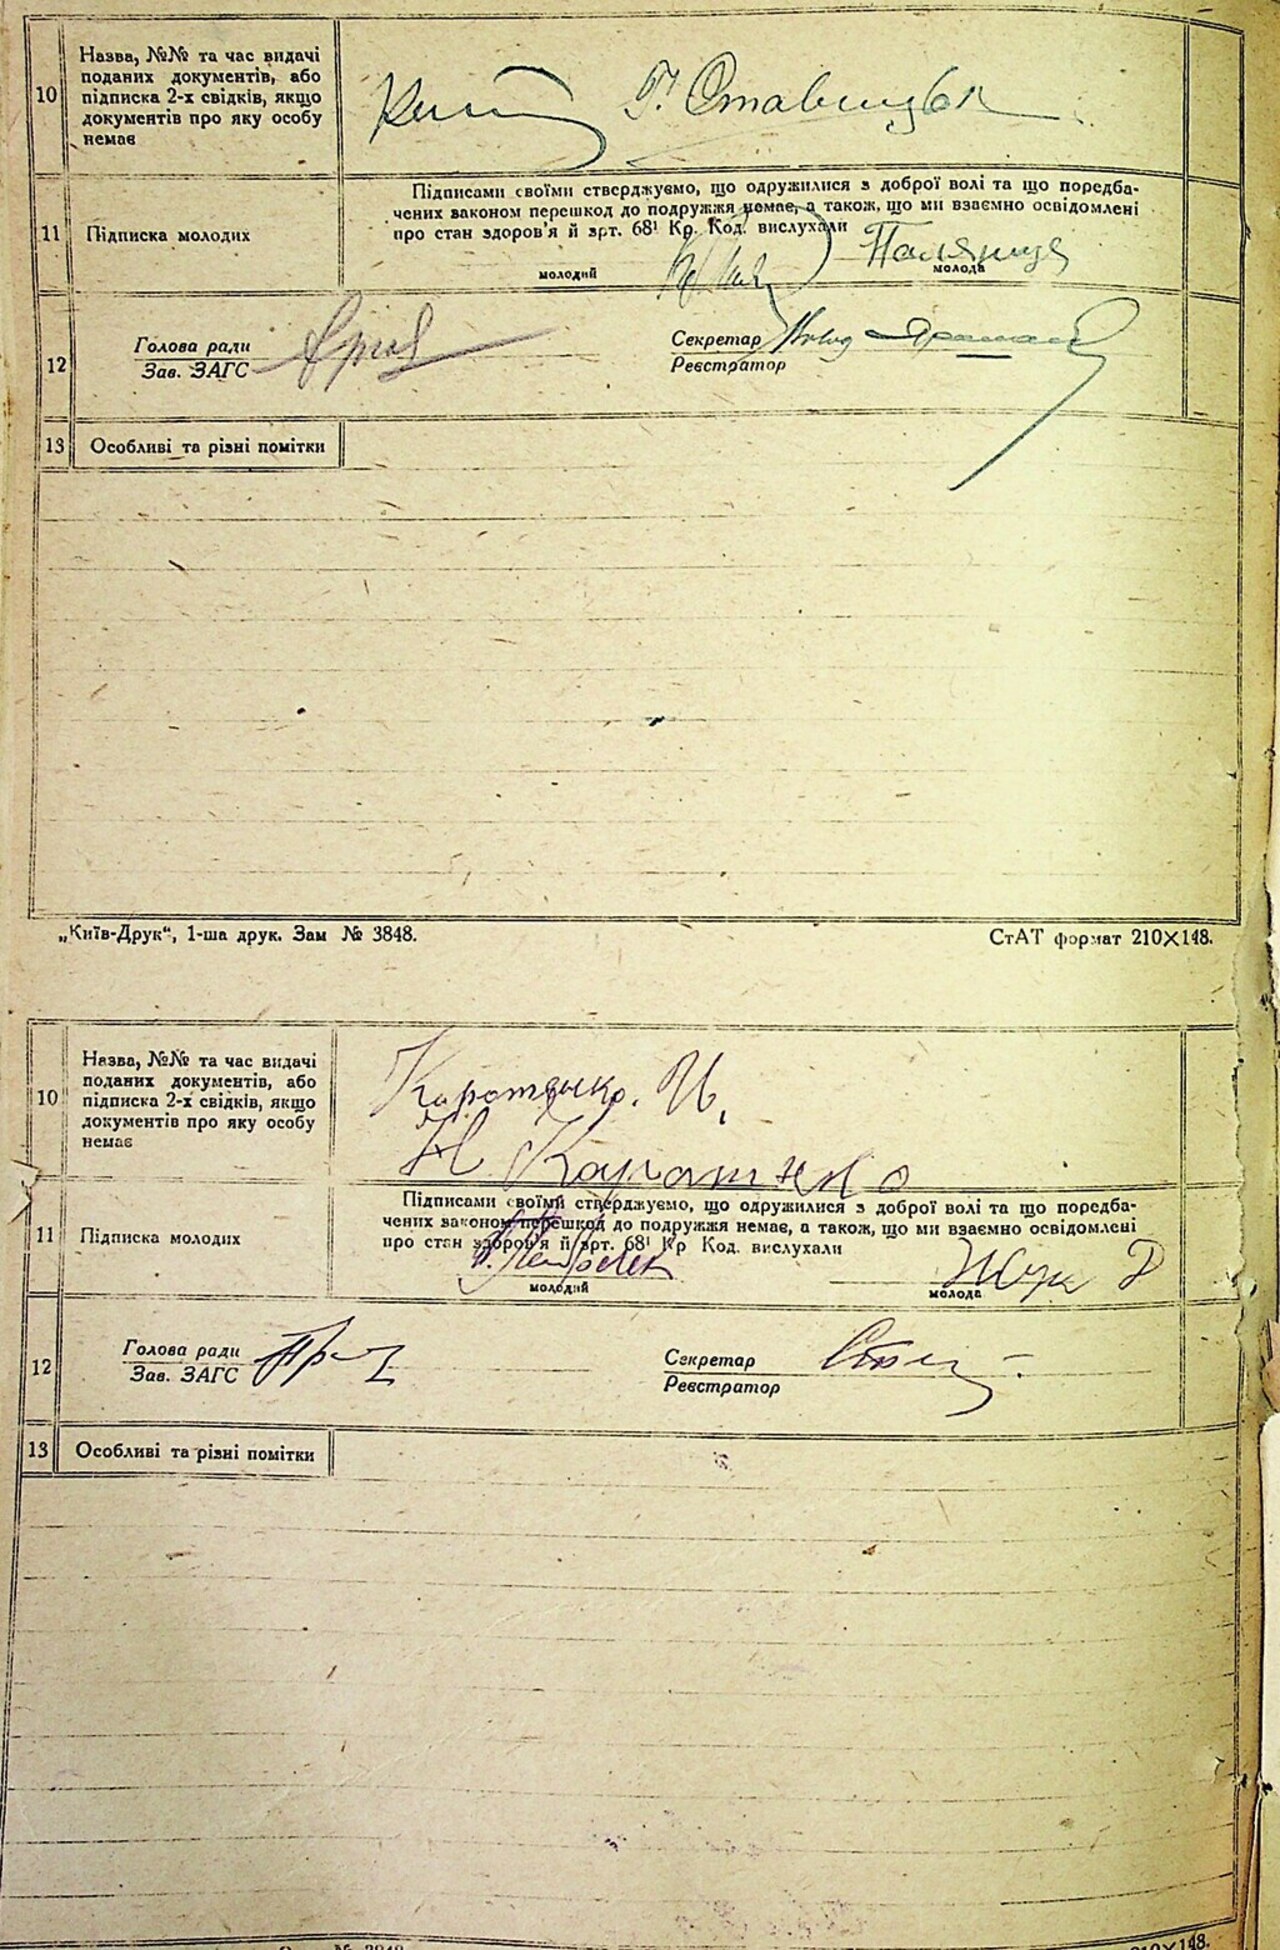 10
Назва, №№ та час видачі
поданих документів, або
підписка 2-х свідків, якщо
документів про яку особу
немає
Г. Ставицьк
11
Підписка молодих
Підписами своїми стверджуємо, що одружилися з доброї волі та що поредба-
чених законом перешкод до подружжя немає, а також, що ми взаємно освідомлені
про стан здоров'я й арт. 68¹ Кр. Код. вислухали
молодий
Паляниця
молода
12
Голова ради
Зав. ЗАГС
Секретар
Реєстратор
13
Особливі та різні помітки
„Київ-Друк", 1-ша друк. Зам № 3848.
СтАТ формат 210×148.
10
Назва, №№ та час видачі
поданих документів, або
підписка 2-х свідків, якщо
документів про яку особу
немає
И.
11
Підписка молодих
Підписами своїми стверджуємо, що одружилися з доброї волі та що поредба-
чених законом перешкод до подружжя немає, а також, що ми взаємно освідомлені
про стан здоров'я й арт. 68¹ Кр Код. вислухали
молодий
Жук
молода
12
Голова ради
Зав. ЗАГС
Секретар
Реєстратор
13
Особливі та різні помітки
№ 3848
210×148.